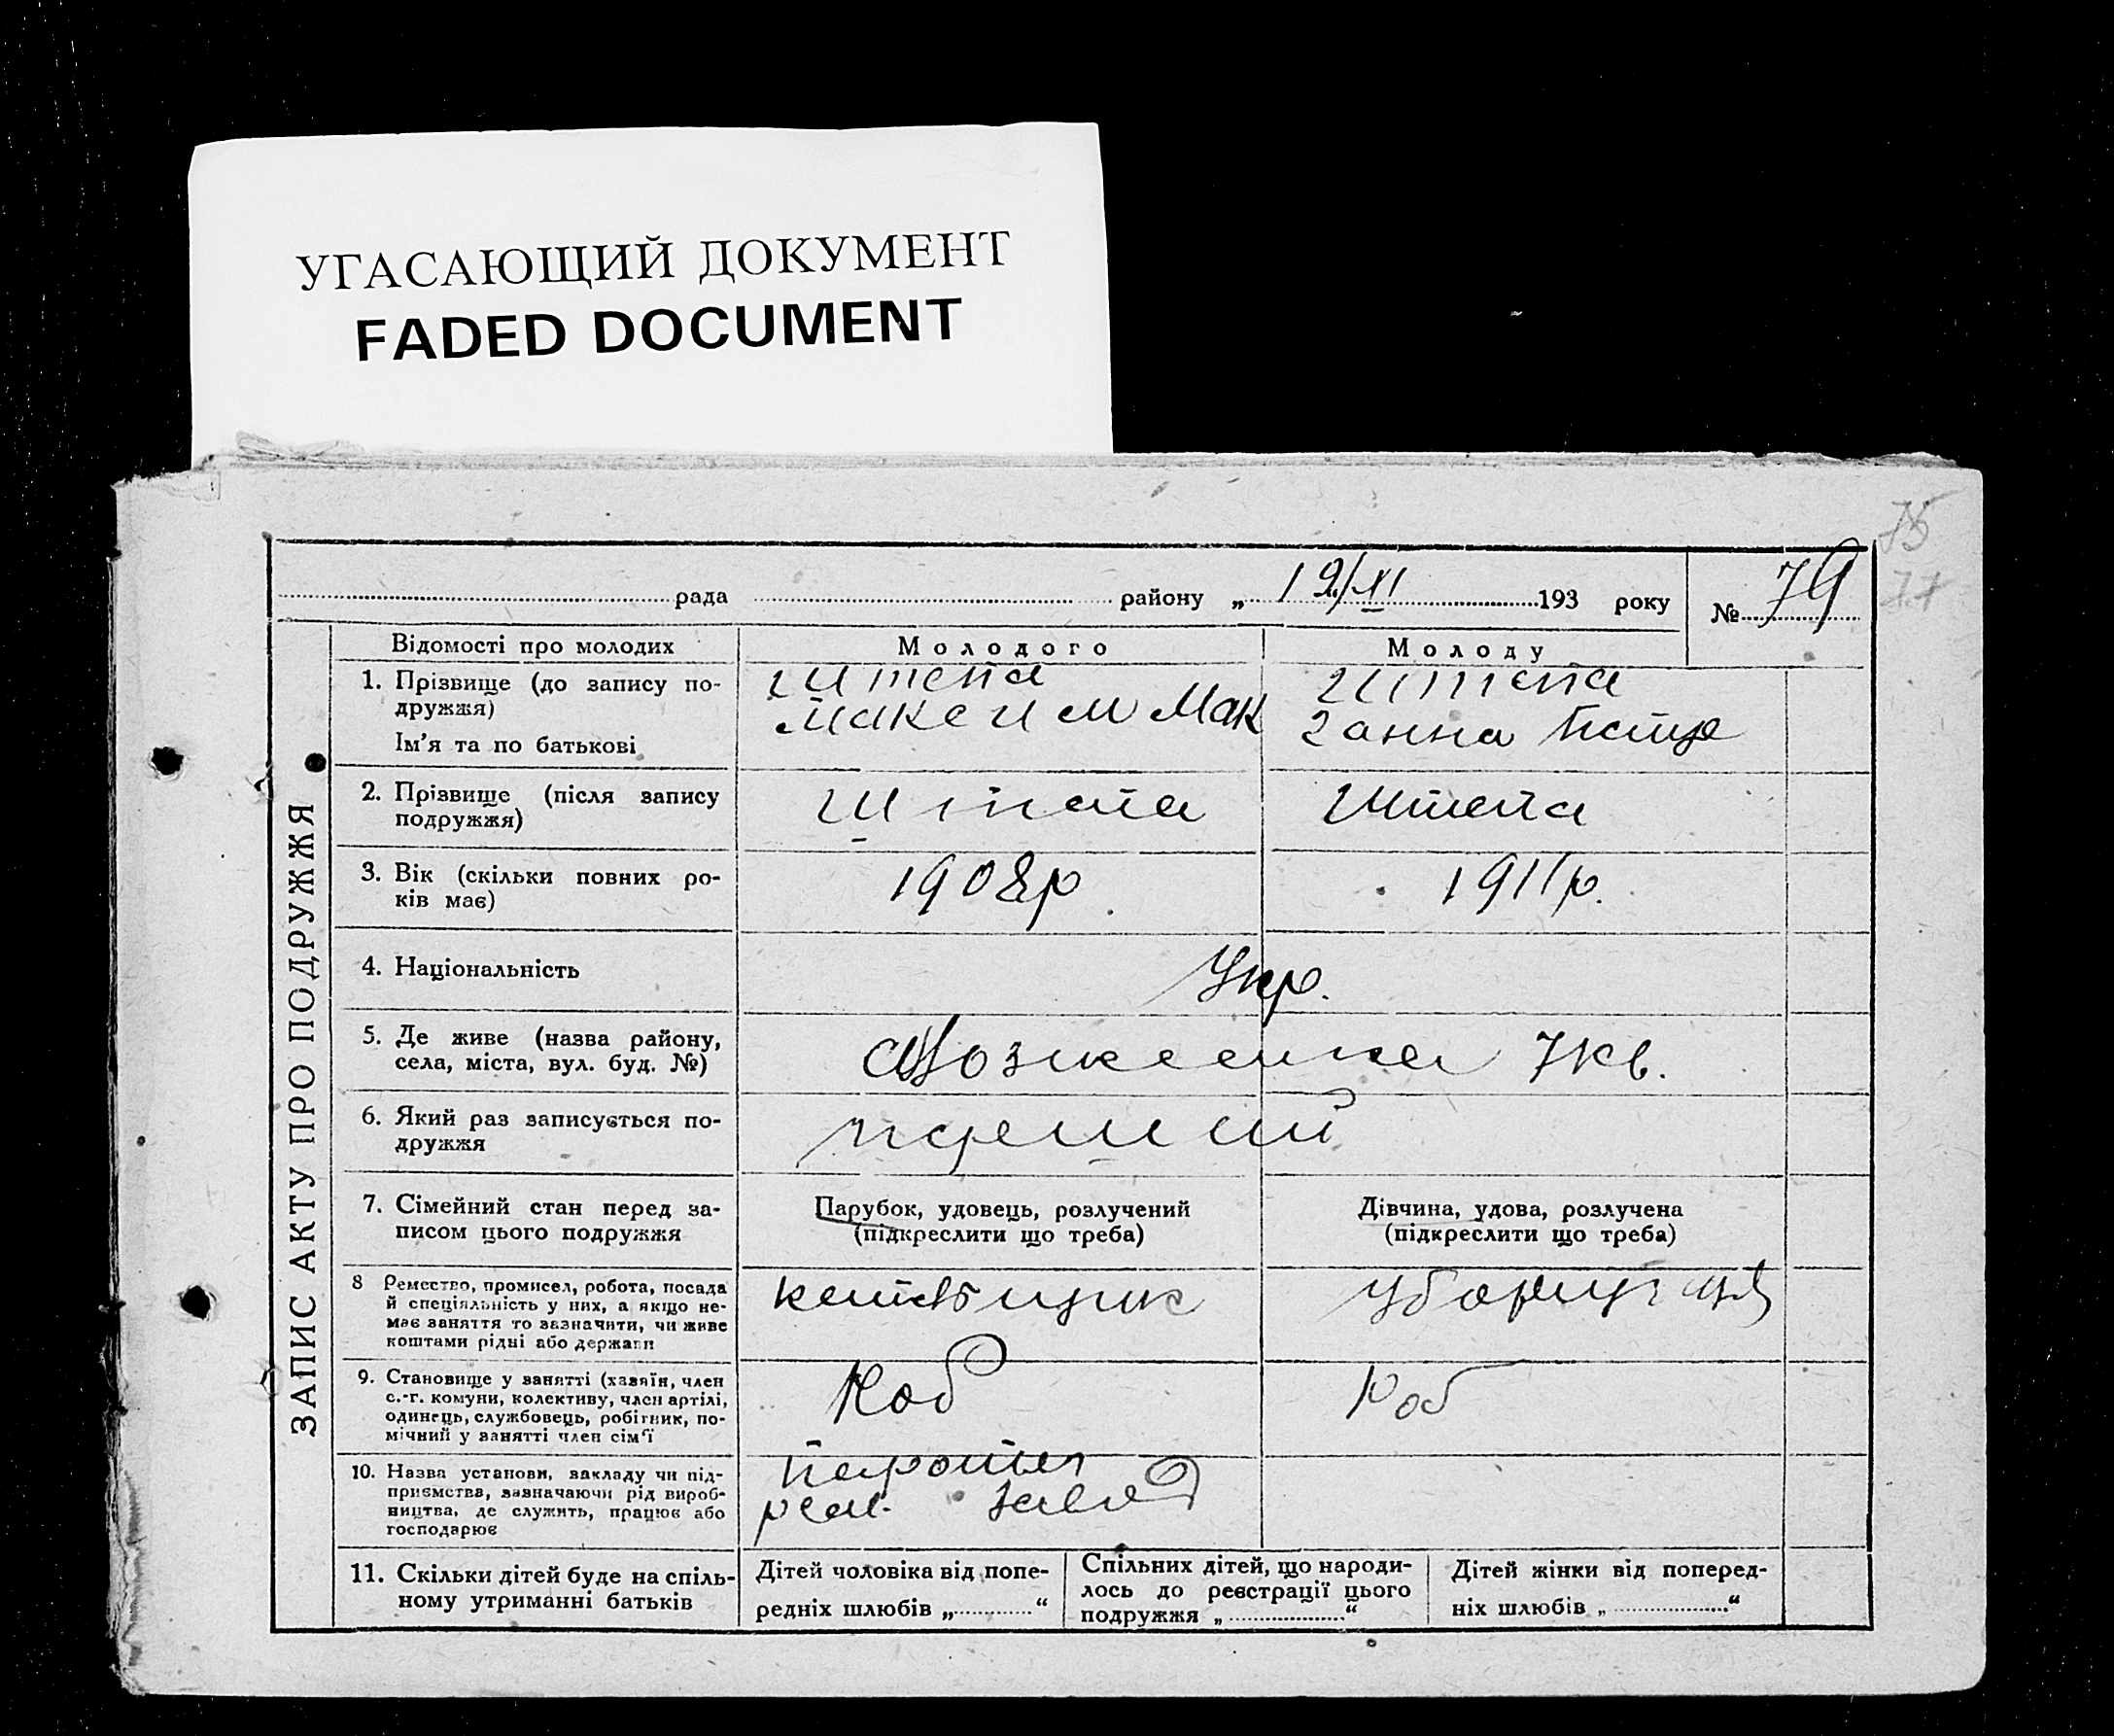 УГАСАЮЩИЙ ДОКУМЕНТ
FADED DOCUMENT
75
77
рада району „ 12/XI 193 року
№ 79
ЗАПИС АКТУ ПРО ПОДРУЖЖЯ
Відомості про молодих
Молодого
Молоду
1. Прізвище (до запису по-
дружжя)
Ім'я та по батькові
Штепа
Максим Мак
Штепа
Ганна
2. Прізвище (після запису
подружжя)
Штепа
Штепа
3. Вік (скільки повних ро-
ків має)
1908р.
1911р.
4. Національність
Укр.
5. Де живе (назва району,
села, міста, вул. буд. №)
7 кв.
6. Який раз записується по-
дружжя
перший
7. Сімейний стан перед за-
писом цього подружжя
Парубок, удовець, розлучений
(підкреслити що треба)
Дівчина, удова, розлучена
(підкреслити що треба)
8 Ремество, промисел, робота, посада
й спеціяльність у них, а якщо не-
має заняття то зазначити, чи живе
коштами рідні або держави
9. Становище у занятті (хазяїн, член
с.-г. комуни, колективу, член артілі,
одинець, службовець, робітник, по-
мічний у занятті член сім'ї
Роб
Роб
10. Назва установи, закладу чи під-
приємства, зазначаючи рід вироб-
ництва, де служить, працює або
господарює
завод
11. Скільки дітей буде на спіль-
ному утриманні батьків
Дітей чоловіка від попе-
редніх шлюбів „ “
Спільних дітей, що народи-
лось до реєстрації цього
подружжя „ “
Дітей жінки від поперед-
ніх шлюбів „ “